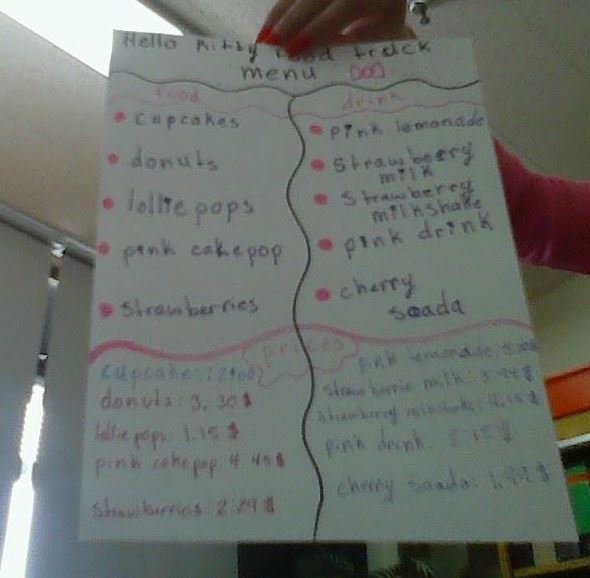 Hello Kitty food truck
menu
food
cupcakes
donuts
lollie pops
pink cakepop
strawberries
drink
pink lemonade
strawberry
milk
strawberry
milkshake
pink drink
cherry
soada
prices
cupcakes:
donuts: 3.30$
lollie pops: 1.15$
pink cakepop: 4.45$
strawberries: 2.29$
pink lemonade:
strawberrie milk:
strawberry milkshake: 4.15$
pink drink:
cherry soada: 1.99$